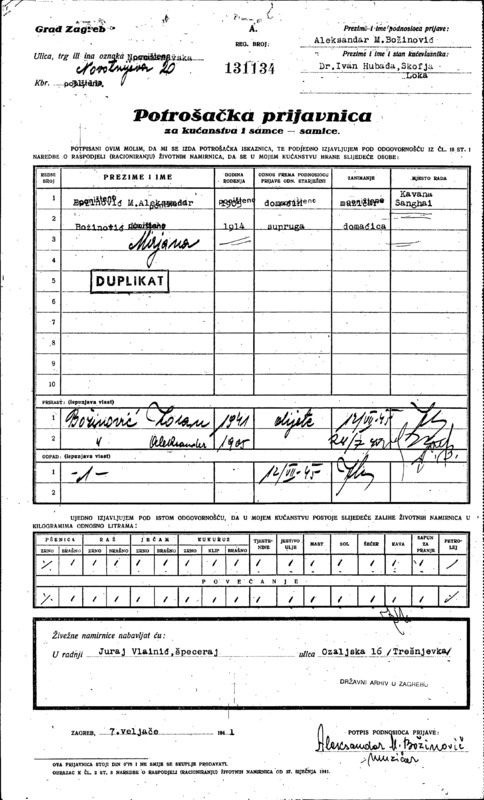 Grad Zagreb
A.
REG. BROJ:
131134
Prezime i ime podnosioca prijave:
Aleksandar M.Božinović
Prezime i ime i stan kućevlasnika:
Dr.Ivan Hubada,Skofja
Loka
Ulica, trg ili ina oznaka
20
Kbr.
Potrošačka prijavnica
za kućanstva i samce — samice.
POTPISANI OVIM MOLIM, DA MI SE IZDA POTROŠAČKA ISKAZNICA, TE PODJEDNO IZJAVLJUJEM POD ODGOVORNOŠĆU IZ ČL. 18 ST. 1
NAREDBE O RASPODJELI (RACIONIRANJU) ŽIVOTNIH NAMIRNICA, DA SE U MOJEM KUĆANSTVU HRANE SLIJEDEĆE OSOBE:
REDNI BROJ PREZIME I IME GODINA ROĐENJA ODNOS PREMA PODNOSIOCU PRIJAVE ODN. STARJEŠINI ZANIMANJE MJESTO RADA
1 Božinović M.Aleksandar 1905 domaćin muzičar Kavana Sanghai
2 Božinović 1914 supruga domaćica
3 Mirjana
4
5 DUPLIKAT
6
7
8
9
10
PRIRAST: (ispunjava vlast)
1 Božinović Zoran 1941 dijete 12/VII-45
2 " Aleksandar 1905
OTPAD: (ispunjava vlast)
1 -1- 12/VII-45
2
UJEDNO IZJAVLJUJEM POD ISTOM ODGOVORNOŠĆU, DA U MOJEM KUĆANSTVU POSTOJE SLIJEDEĆE ZALIHE ŽIVOTNIH NAMIRNICA U
KILOGRAMIMA ODNOSNO LITRAMA:
PŠENICA RAŽ JEČAM KUKURUZ TJESTENINE JESTIVO ULJE MAST SOL ŠEĆER KAVA SAPUN ZA PRANJE PETROLEJ
ZRNO BRAŠNO ZRNO BRAŠNO ZRNO BRAŠNO ZRNO KLIP BRAŠNO
POVEĆANJE
Živežne namirnice nabavljat ću:
U radnji Juraj Vlainić,špeceraj ulica Ozaljska 16 /Trešnjevka/
DRŽAVNI ARHIV U ZAGREBU
ZAGREB, 7.veljače 1941
POTPIS PODNOSIOCA PRIJAVE:
Aleksandar M. Božinović
muzičar
OVA PRIJAVNICA STOJI DIN 0'75 I NE SMIJE SE SKUPLJE PRODAVATI.
OBRAZAC K ČL. 2 ST. 2 NAREDBE O RASPODJELI (RACIONIRANJU) ŽIVOTNIH NAMIRNICA OD 27. SIJEČNJA 1941.